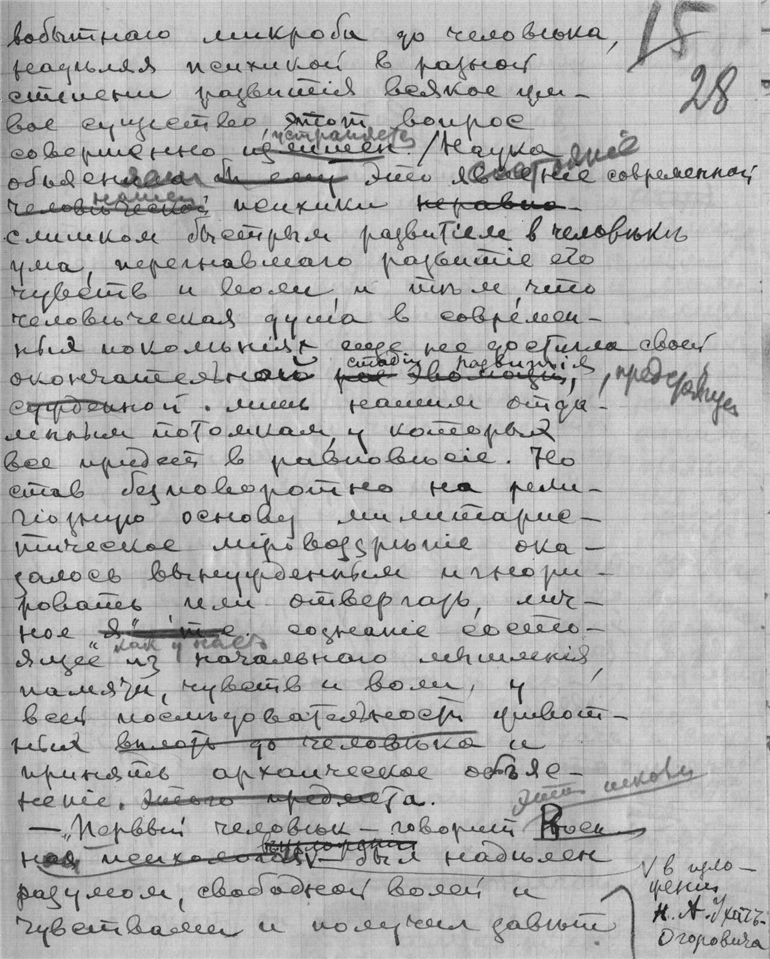 15
28
вобытнаго микроба до человѣка,
надѣляя психикой в разной
степени развитія всякое жи-
вое существо этот вопрос
устраняется
совершенно /Наука
состояніе
объясн это явленіе современной
нашей
человѣческой психики неравно-
слишком быстрым развитіем в человѣкѣ
ума, перегнавшаго развитіе его
чувств и воли и тѣм что
человѣческая душа в современ-
ных поколѣніях еще не достигла своей
стадіи развитія
окончательной эволюціи,
сужденной лишь нашим отда-
ленным потомкам, у которых
все придет в равновѣсіе. Но
став безповоротно на рели-
гіозную основу милитарис-
тическое міровоззрѣніе ока-
залось вынужденным игнори-
ровать или отвергать, лич-
ное "я" т.е. сознаніе состо-
как у нас
ящее из начальнаго мышленія,
памяти, чувств и воли, у
всей послѣдовательности живот-
ных вплоть до человѣка и
принять архаическое объяс-
неніе. этого предмета.
этой школы
— "Первый человѣк — говорит Воен
ная психологія — был надѣлен
разумом, свободной волей и
чувствами и получил завѣт
V в изло-
женіи
Н. А. Ухтъ-
Огоровича